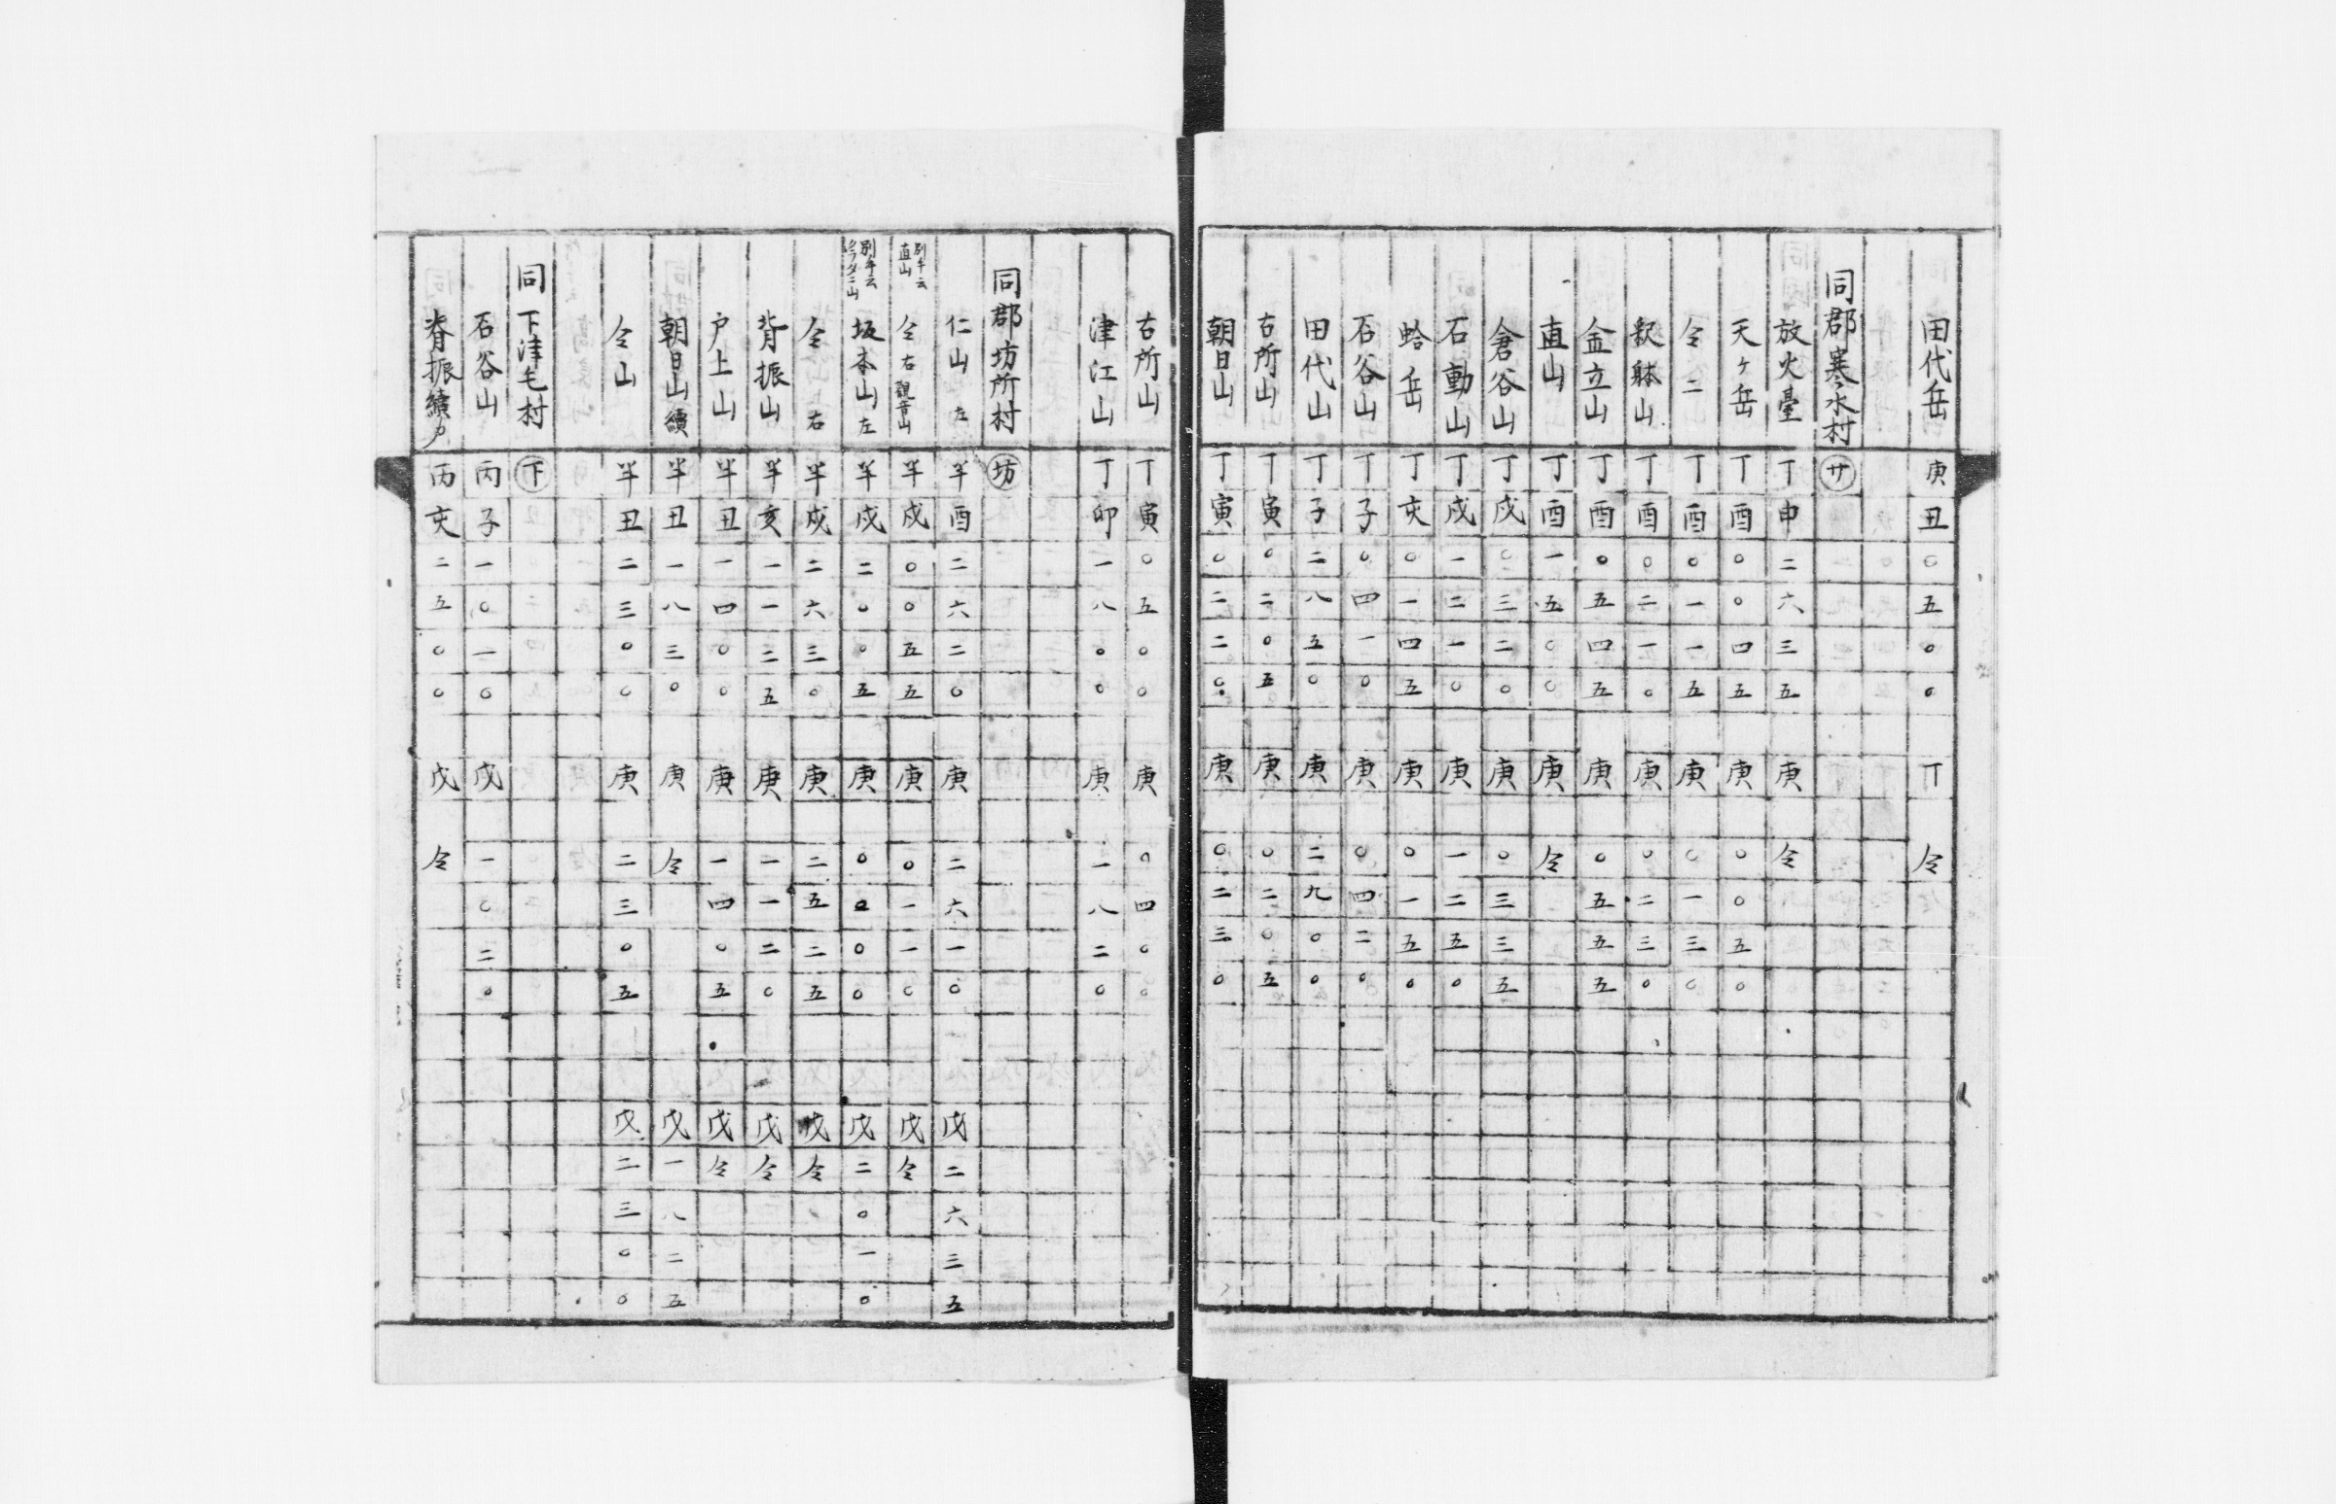 田代岳 庚丑〇五〇〇 丁 仝
同郡寒水村 サ
放火臺 丁申二六三五 庚 仝
天ケ岳 丁酉〇〇四五 庚〇〇五〇
仝二 丁酉〇一一五 庚〇一三〇
釈躰山 丁酉〇二一〇 庚〇二三〇
金立山 丁酉〇五四五 庚〇五五五
直山 丁酉一五〇〇 庚 仝
倉谷山 丁戌〇三二〇 庚〇三三五
石動山 丁戌一二一〇 庚一二五〇
蛤岳 丁亥〇一四五 庚〇一五〇
石谷山 丁子〇四一〇 庚〇四二〇
田代山 丁子二八五〇 庚二九〇〇
古所山 丁寅〇二〇五 庚〇二〇五
朝日山 丁寅〇二二〇 庚〇二三〇
古所山 丁寅〇五〇〇 庚〇四〇〇
津江山 丁卯一八〇〇 庚一八二〇
同郡坊所村 坊
仁山 左 羊酉二六二〇 庚二六一〇 戊二六三五
別羊云 直山 仝右 観音山 羊戌〇〇五五 庚〇一一〇 戊仝
別羊云 坂本山左 羊戌二〇〇五 庚〇〇〇〇 戊二〇一〇
仝 右 羊戌二六三〇 庚二五二五 戊仝
背振山 羊亥一一二五 庚一一二〇 戊仝
戸上山 羊丑一四〇〇 庚一四〇五 戊仝
朝日山續 羊丑一八三〇 庚 仝 戊一八二五
仝山 羊丑二三〇〇 庚二三〇五 戊二三〇〇
同下津毛村 下
石谷山 丙子一〇一〇 戊一〇二〇
脊振續 丙亥二五〇〇 戊 仝